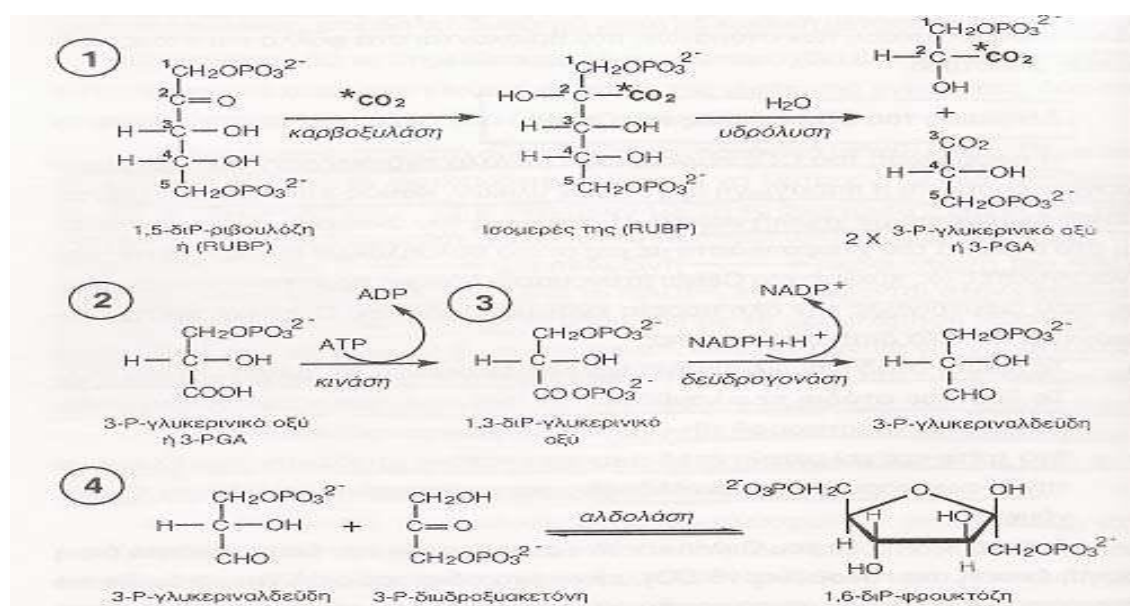 1
¹CH₂OPO₃²⁻
²C=O
H—³C—OH
H—⁴C—OH
⁵CH₂OPO₃²⁻
1,5-διΡ-ριβουλόζη
ή (RUBP)
*CO₂
καρβοξυλάση
¹CH₂OPO₃²⁻
HO—²C—*CO₂
H—³C—OH
H—⁴C—OH
⁵CH₂OPO₃²⁻
Ισομερές της (RUBP)
H₂O
υδρόλυση
¹CH₂OPO₃²⁻
H—²C—*CO₂
OH
+
³CO₂
H—⁴C—OH
⁵CH₂OPO₃²⁻
2 X 3-Ρ-γλυκερινικό οξύ
ή 3-PGA
2
CH₂OPO₃²⁻
H—C—OH
COOH
3-Ρ-γλυκερινικό οξύ
ή 3-PGA
ADP
ATP
κινάση
3
CH₂OPO₃²⁻
H—C—OH
CO OPO₃²⁻
1,3-διΡ-γλυκερινικό
οξύ
NADP⁺
NADPH+H⁺
δευδρογονάση
CH₂OPO₃²⁻
H—C—OH
CHO
3-Ρ-γλυκεριναλδεΰδη
4
CH₂OPO₃²⁻
H—C—OH
CHO
3-Ρ-γλυκεριναλδεΰδη
+
CH₂OH
C=O
CH₂OPO₃²⁻
3-Ρ-διυδροξυακετόνη
αλδολάση
²⁻O₃POH₂C
O
OH
H
HO
H
CH₂OPO₃²⁺
HO
H
1,6-διΡ-φρουκτόζη